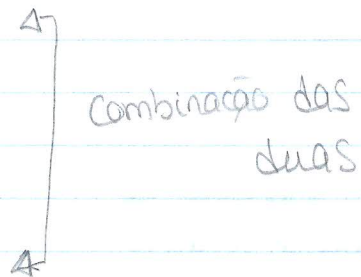 Combinação das
duas